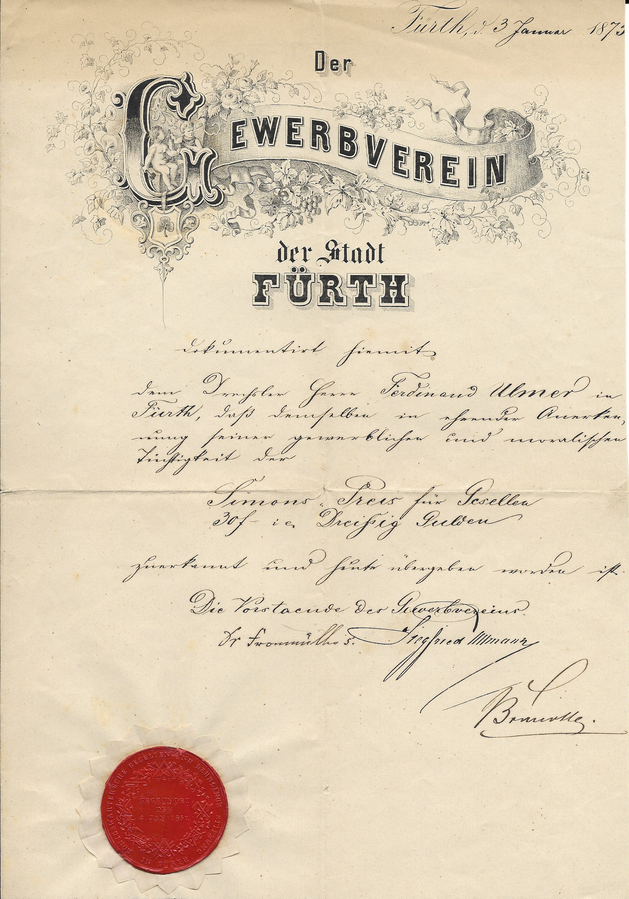 Fürth, d. 3 Januar 1873
Der
GEWERBVEREIN
der Stadt
FÜRTH
dokumentirt hiemit
dem Drechsler Herrn Ferdinand Ulmer in
Fürth, daß demselben in ehrender Anerken-
nung seiner gewerblichen und moralischen
Tüchtigkeit der
Simons-Preis für Gesellen
30 f. i. e. Dreißig Gulden
zuerkannt und heute übergeben worden ist.
Die Vorstaende des Gewerbvereins.
Dr Fronmüller s. Siegfried Ullmann